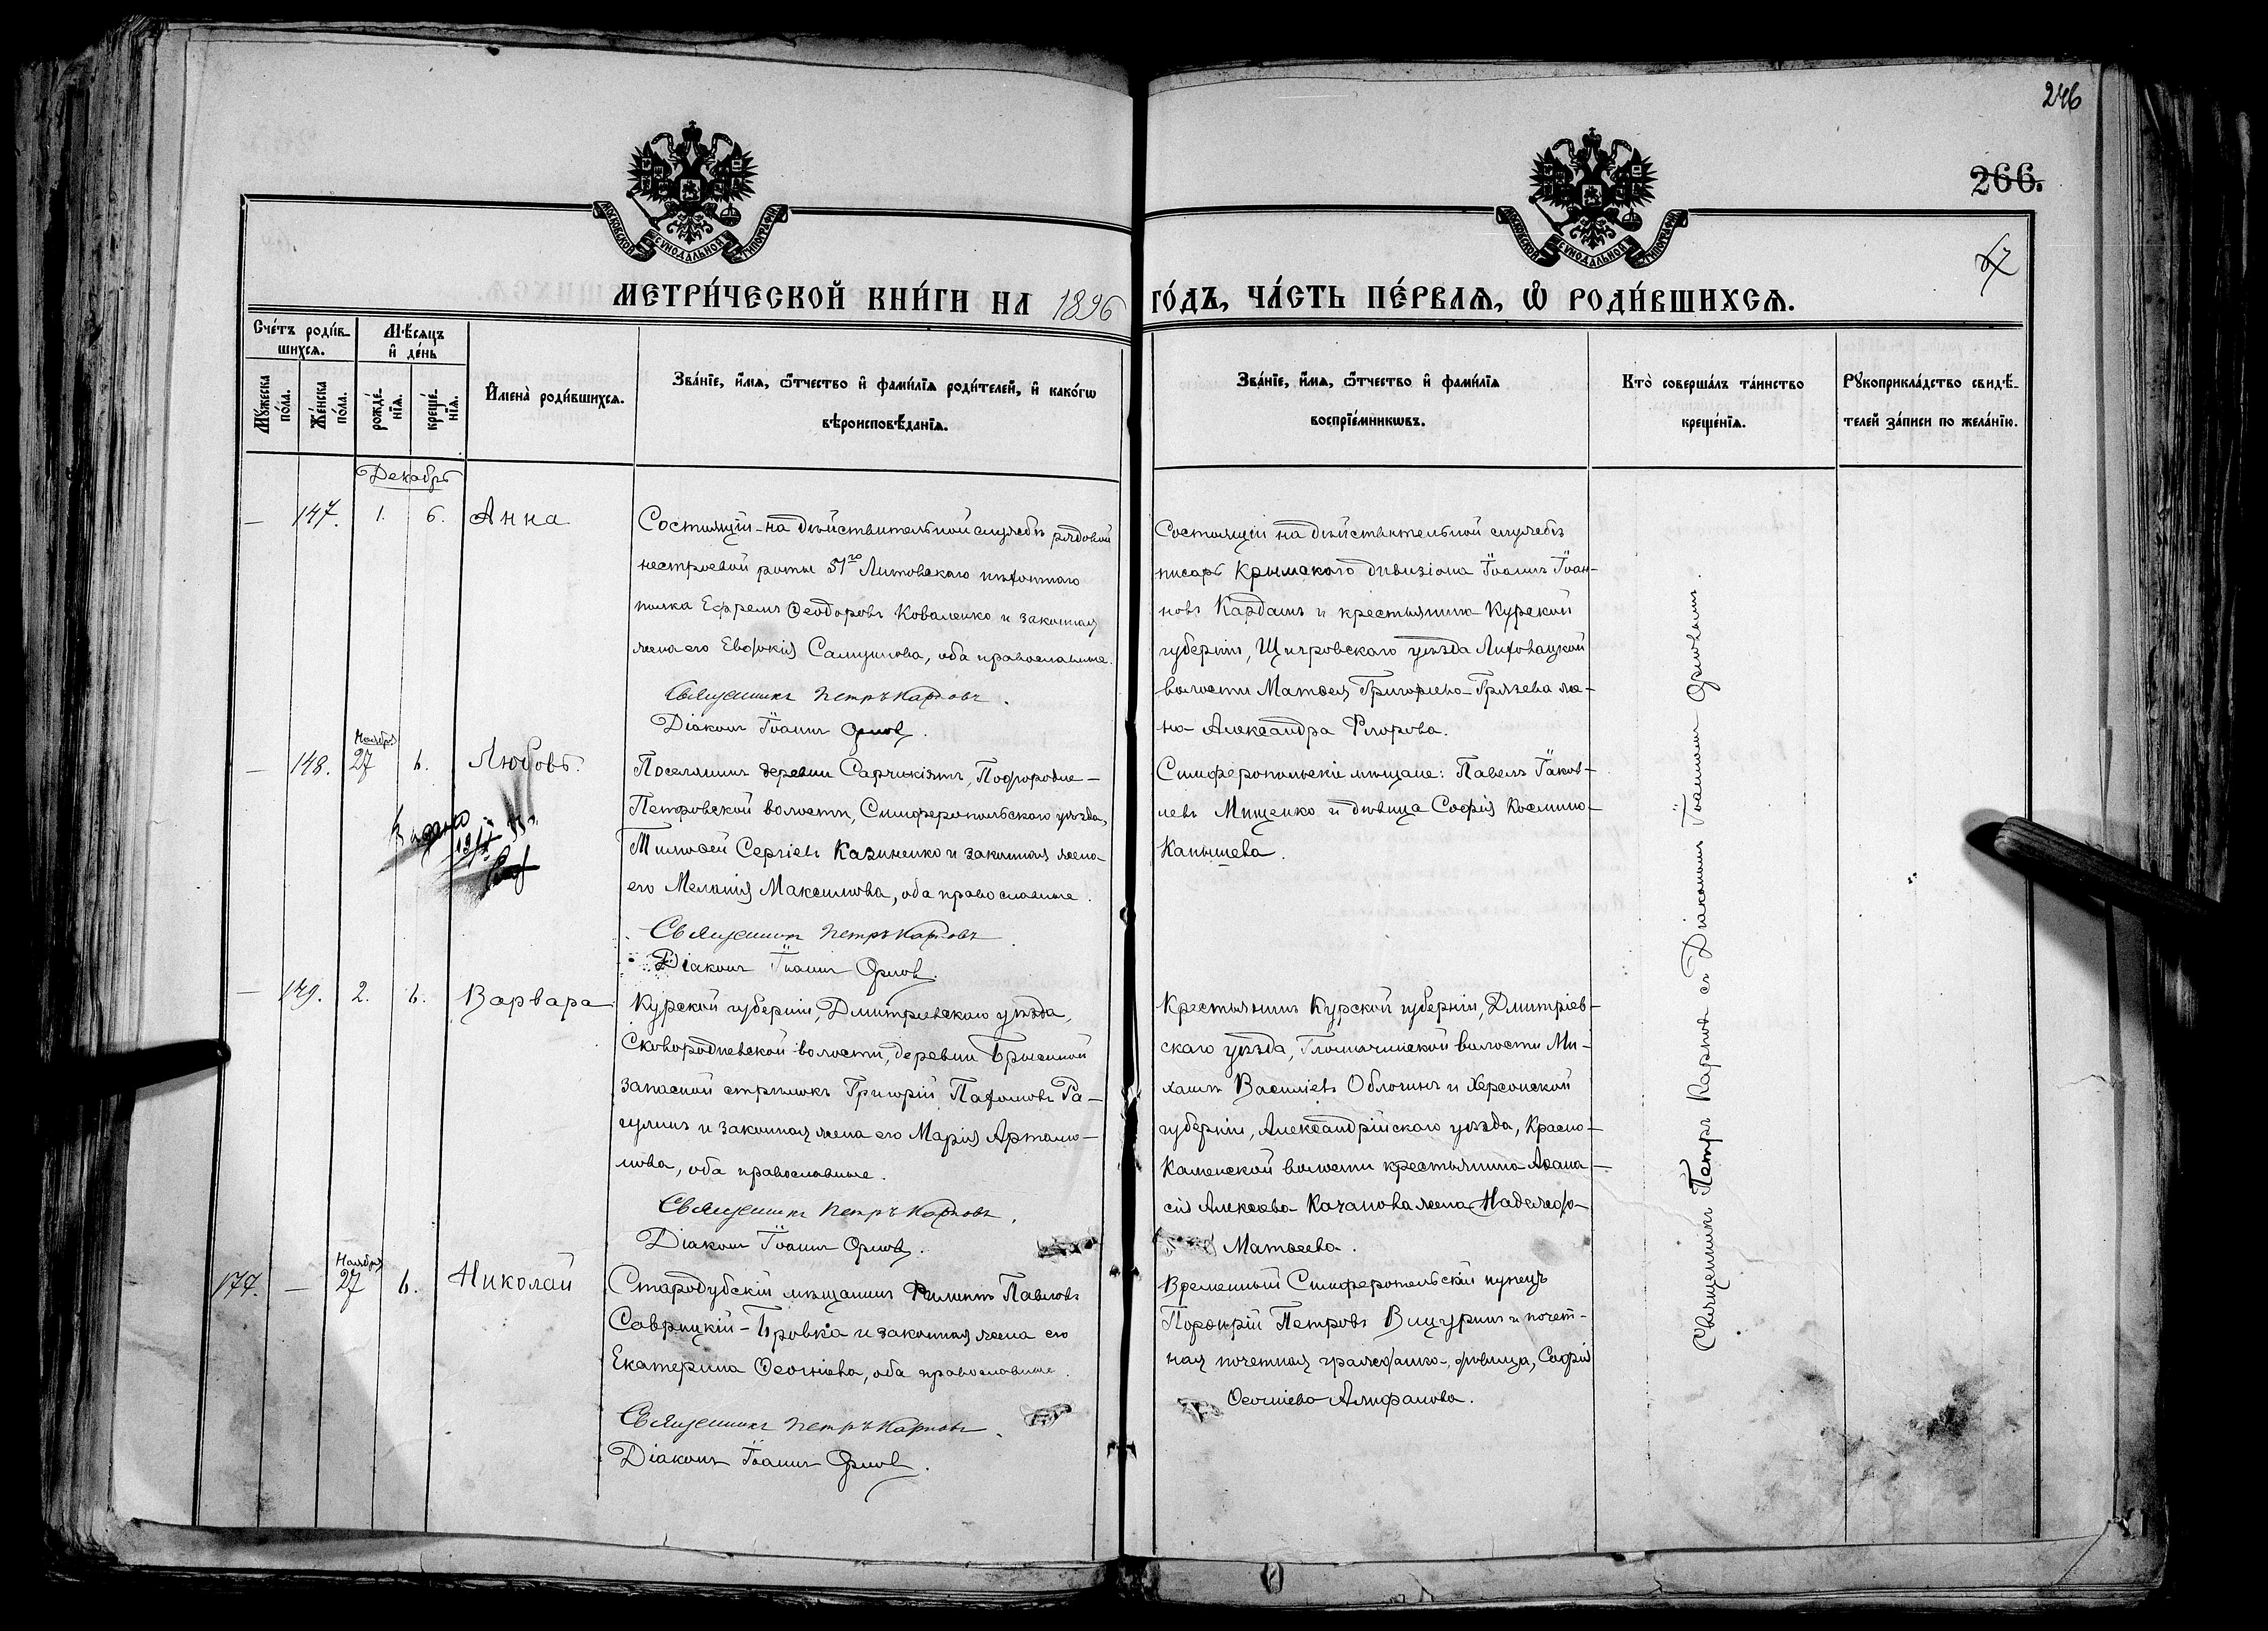 246
266.
67
МОСКОВСКОЙ СѴНОДАЛЬНОЙ ТИПОГРАФІИ
МОСКОВСКОЙ СѴНОДАЛЬНОЙ ТИПОГРАФІИ
МЕТРИ́ЧЕСКОЙ КНИ́ГИ НА 1896 ГО́ДЪ, ЧА́СТЬ ПЕ́РВАѦ, Ѽ РОДИ́ВШИХСѦ.
Сче́тъ роди́в-
шихсѧ.
Мѣ́сѧцъ
и҆ де́нь
Мꙋ́жеска
по́ла.
Же́нска
по́ла.
рожде́-
нїѧ.
креще́-
нїѧ.
И҆мена̀ роди́вшихсѧ.
Зва́нїе, и҆́мѧ, ѻ҆́тчество и҆ фами́лїѧ роди́телей, и҆ како́гѡ
вѣроисповѣ́данїѧ.
Зва́нїе, и҆́мѧ, ѻ҆́тчество и҆ фами́лїѧ
воспрїе́мникѡвъ.
Кто̀ соверша́лъ та́инство
креще́нїѧ.
Рꙋкоприкла́дство свидѣ́-
телей за́писи по жела́нїю.
Декабрь
— 147. 1. 6. Анна
Состоящій на дѣйствительной службѣ рядовой
нестроевой роты 51го Литовскаго пѣхотнаго
полка Ефремъ Ѳеодоровъ Коваленко и законная
жена его Евдокія Самуилова, оба православные.
Священникъ Петръ Карповъ.
Діаконъ Іоаннъ Орловъ.
Состоящій на дѣйствительной службѣ
писарь Крымскаго дивизіона Іоаннъ Іоан-
новъ Кардашъ и крестьянина Курской
губерніи, Щигровскаго уѣзда Липовацкой
волости Матѳея Григорьева Грязева же-
на Александра Егорова.
— 148. Ноября 27 6. Любовь.
Поселянинъ деревни Сарчикіятъ, Подгородне-
Петровской волости, Симферопольскаго уѣзда,
Тимоѳей Сергіевъ Казиненко и законная жена
его Меланія Максимова, оба православные.
Священникъ Петръ Карповъ.
Діаконъ Іоаннъ Орловъ.
Симферопольскіе мѣщане: Павелъ Іаков-
левъ Мищенко и дѣвица Софія Космина
Капышева.
— 149. 2. 6. Варвара
Курской губерніи, Дмитріевскаго уѣзда,
Сковородневской волости, деревни
запасной стрѣлокъ Григорій Пахомовъ Ра-
гулинъ и законная жена его Марія Артамо-
нова, оба православные.
Священникъ Петръ Карповъ.
Діаконъ Іоаннъ Орловъ.
Крестьянинъ Курской губерніи, Дмитріев-
скаго уѣзда, волости Ми-
хаилъ Василіевъ Облогинъ и Херсонской
губерніи, Александрійскаго уѣзда, Красно-
Каменской волости крестьянина Аѳана-
сія Алексѣева Качанова жена Надежда
Матѳеева.
174. — Ноября 27 6. Николай
Стародубскій мѣщанинъ Филиппъ Павловъ
Саврицкій-Бровка и законная жена его
Екатерина Ѳеогніева, оба православные.
Священникъ Петръ Карповъ.
Діаконъ Іоаннъ Орловъ.
Временный Симферопольскій купецъ
Порфирій Петровъ Вищуринъ и почет-
ная почетная гражданка, дѣвица, Софія
Алифанова.
Священникъ Петръ Карповъ съ Діакономъ Іоанномъ Орловымъ.